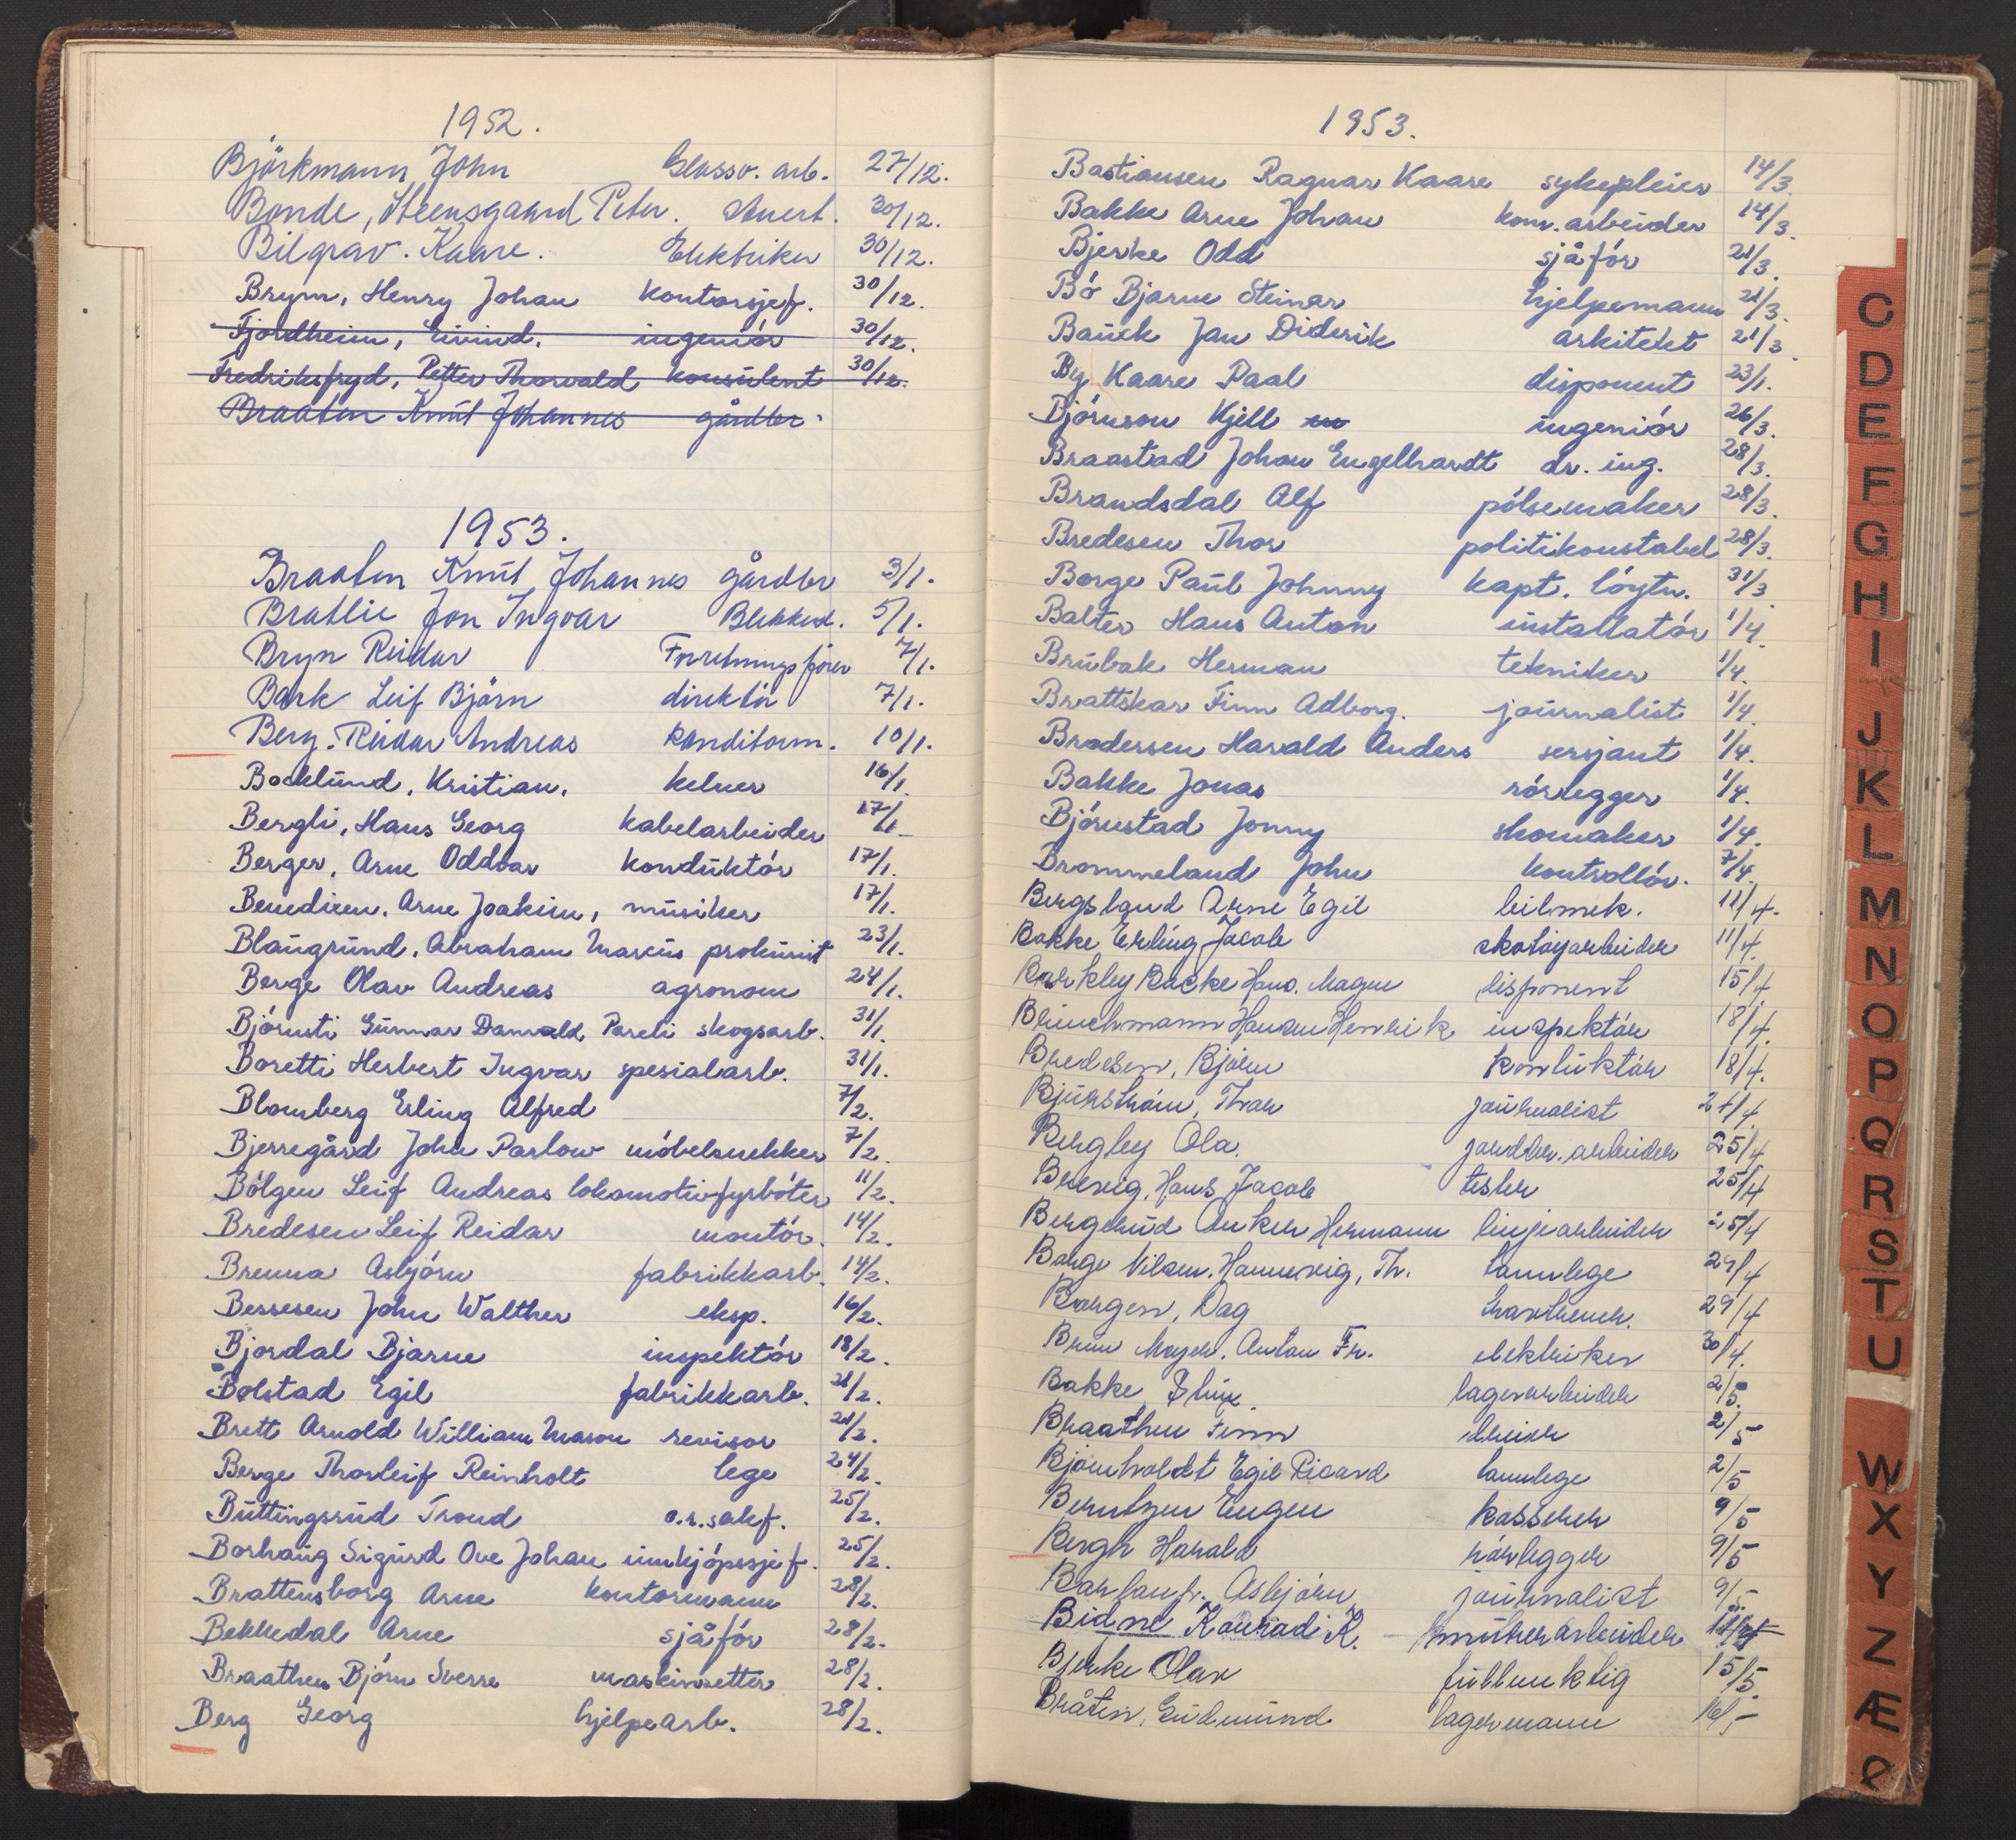 1952.
Björkmann, John Glassv. arb. 27/12.
Bonde, Steensgaard Peter. 30/12.
Bilgrav. Kaare. Elektriker 30/12.
Brym, Henry Johan kontorsjef. 30/12.
Fjordheim, Eivind. ingeniör 30/12.
Fredriksfryd, Petter Thorvald konsulent 30/12.
Braaten Knut Johannes gårdbr.
1953.
Braaten Knut Johannes gårdbr 3/1.
Bratlie Jon Ingvar Blikkensl. 5/1.
Bryn Reidar Forretningsförer 7/1.
Bark Leif Björn direktör 7/1.
Berg. Reidar Andreas konditorm. 10/1.
Backlund, Kristian, kelner 16/1.
Bergli, Hans Georg kabelarbeider 17/1
Berger, Arne Oddvar konduktór 17/1.
Benedixen, Arne Joakim, musiker 17/1.
Blaugrund, Abraham Marcus prokurist 23/1.
Berge Olav Andreas agronom 24/1.
Bjórusti Gunnar Danvald Pareli skogsarb. 31/1.
Boretti Herbert Ingvar spesialarb. 31/1.
Blomberg Erling Alfred 7/2.
Bjerregård John Parlow móbelsnekker 7/2.
Bólgen Leif Andreas lokomotivfyrbóter 11/2.
Bredesen Leif Reidar montór. 14/2.
Brenna Asbjórn fabrikkarb. 14/2.
Bessesen John Walther eksp. 16/2.
Bjordal Bjarne inspektór 18/2.
Bolstad Egil fabrikkarb. 21/2.
Brett Arnold William Mason revisor 21/2.
Berge Thorleif Reinholt lege 24/2.
Buttingsrud Trond o.r.sakf. 25/2.
Borhaug Sigurd Ove Johan innkjópssjef. 25/2.
Brattensborg Arne kontormann 28/2.
Bekkedal Arne sjåfór 28/2.
Braathen Bjórn Sverre maskinsetter 28/2.
Berg Georg hjelpearb. 28/2.
1953.
Bastiansen Ragnar Kaare sykepleier 14/3.
Bakke Arne Johan kom. arbeider 14/3.
Bjerke Odd sjåfór 21/3.
Bó Bjarne Steinar hjelpemann 21/3.
Bauck Jan Diderik arkitekt 21/3.
By Kaare Paal disponent 23/1.
Bjórnson Kjell ingeniór 26/3.
Braastad Johan Engelhardt dr. ing. 28/3.
Brandsdal Alf pólsemaker 28/3.
Bredesen Thor politikonstabel 28/3.
Borge Paul Johnny kapt. lóytn. 31/3.
Balter Hans Anton installatór 1/4.
Brubak Herman tekniker 1/4.
Brattskar Finn Adborg. journalist 1/4.
Brodersen Harald Anders sersjant 1/4.
Bakke Jonas rórlegger 1/4.
Bjórnstad Jonny skomaker 1/4.
Brommeland John kontrollór. 7/4.
Bergsland Arne Egil bilmek. 11/4.
Bakke Erling Jacob skotöyarbeider 11/4.
Barkley Backe Hans. Magne disponent 15/4.
Brinchmann Hansen Henrik inspektór 18/4.
Bredesen, Björn konduktór 18/4.
Bjurstróm, Thor journalist 24/4.
Bergley Ola. jordbr. arbeider 25/4
Brevig, Hans Jacob 25/4
Bergerud Anker Hermann linjearbeider 25/4
Borge Nilsen. Hannevig, Th. tannlege 29/4
Borgen, Dag 29/4
Brun Meyer. Anton Fr. elektriker 30/4.
Bakke, lagerarbeider 2/5.
Braathen Finn 2/5
Bjórnholdt Egil Ricard tannlege 2/5
Berntzen Eugen kasserer 9/5
Bergh Harald rórlegger 9/5
Asbjórn journalist 9/5.
Bidne Konrad K. murerarbeider
Bjerke Olav fullmektig 15/5.
Bråten, Gudmund lagermann 16/5
C
D
E
F
G
H
I
J
K
L
M
N
O
P
Q
R
S
T
U
W
X
Y
Z
Æ